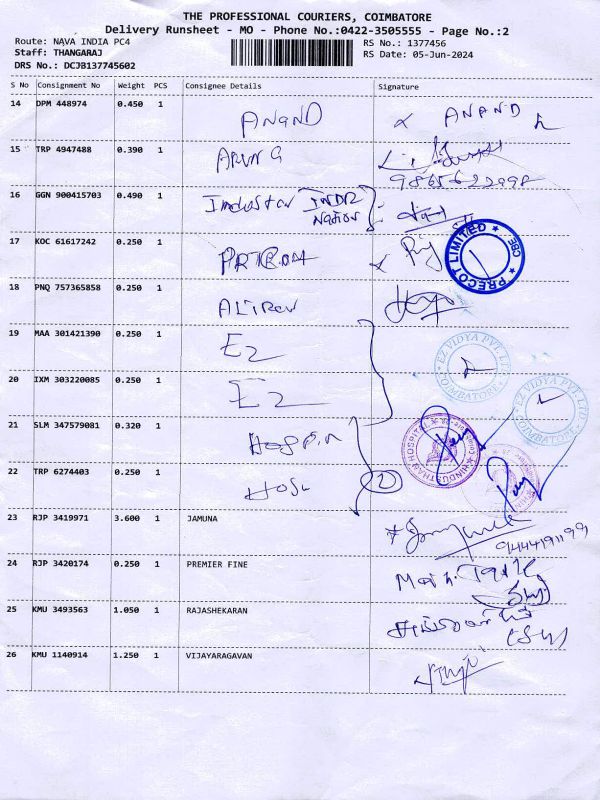 THE PROFESSIONAL COURIERS, COIMBATORE
Delivery Runsheet - MO - Phone No.:0422-3505555 - Page No.:2
Route: NAVA INDIA PC4
RS No.: 1377456
Staff: THANGARAJ
RS Date: 05-Jun-2024
DRS No.: DCJB137745602
S No Consignment No Weight PCS Consignee Details Signature
14 DPM 448974 0.450 1 ANAND ANAND
15 TRP 4947488 0.390 1 ARUN G
9865622998
16 GGN 900415703 0.490 1 Industar INDR
Nation
17 KOC 61617242 0.250 1
PRECOT LIMITED CBE
18 PNQ 757365858 0.250 1
19 MAA 301421390 0.250 1 EZ
EZ VIDYA PVT. LTD. COIMBATORE
20 IXM 303220085 0.250 1 EZ
EZ VIDYA PVT. LTD. COIMBATORE
21 SLM 347579081 0.320 1
HINDUSTHAN HOSPITAL
22 TRP 6274403 0.250 1 2
23 RJP 3419971 3.600 1 JAMUNA
9444191199
24 RJP 3420174 0.250 1 PREMIER FINE
25 KMU 3493563 1.050 1 RAJASHEKARAN
26 KMU 1140914 1.250 1 VIJAYARAGAVAN